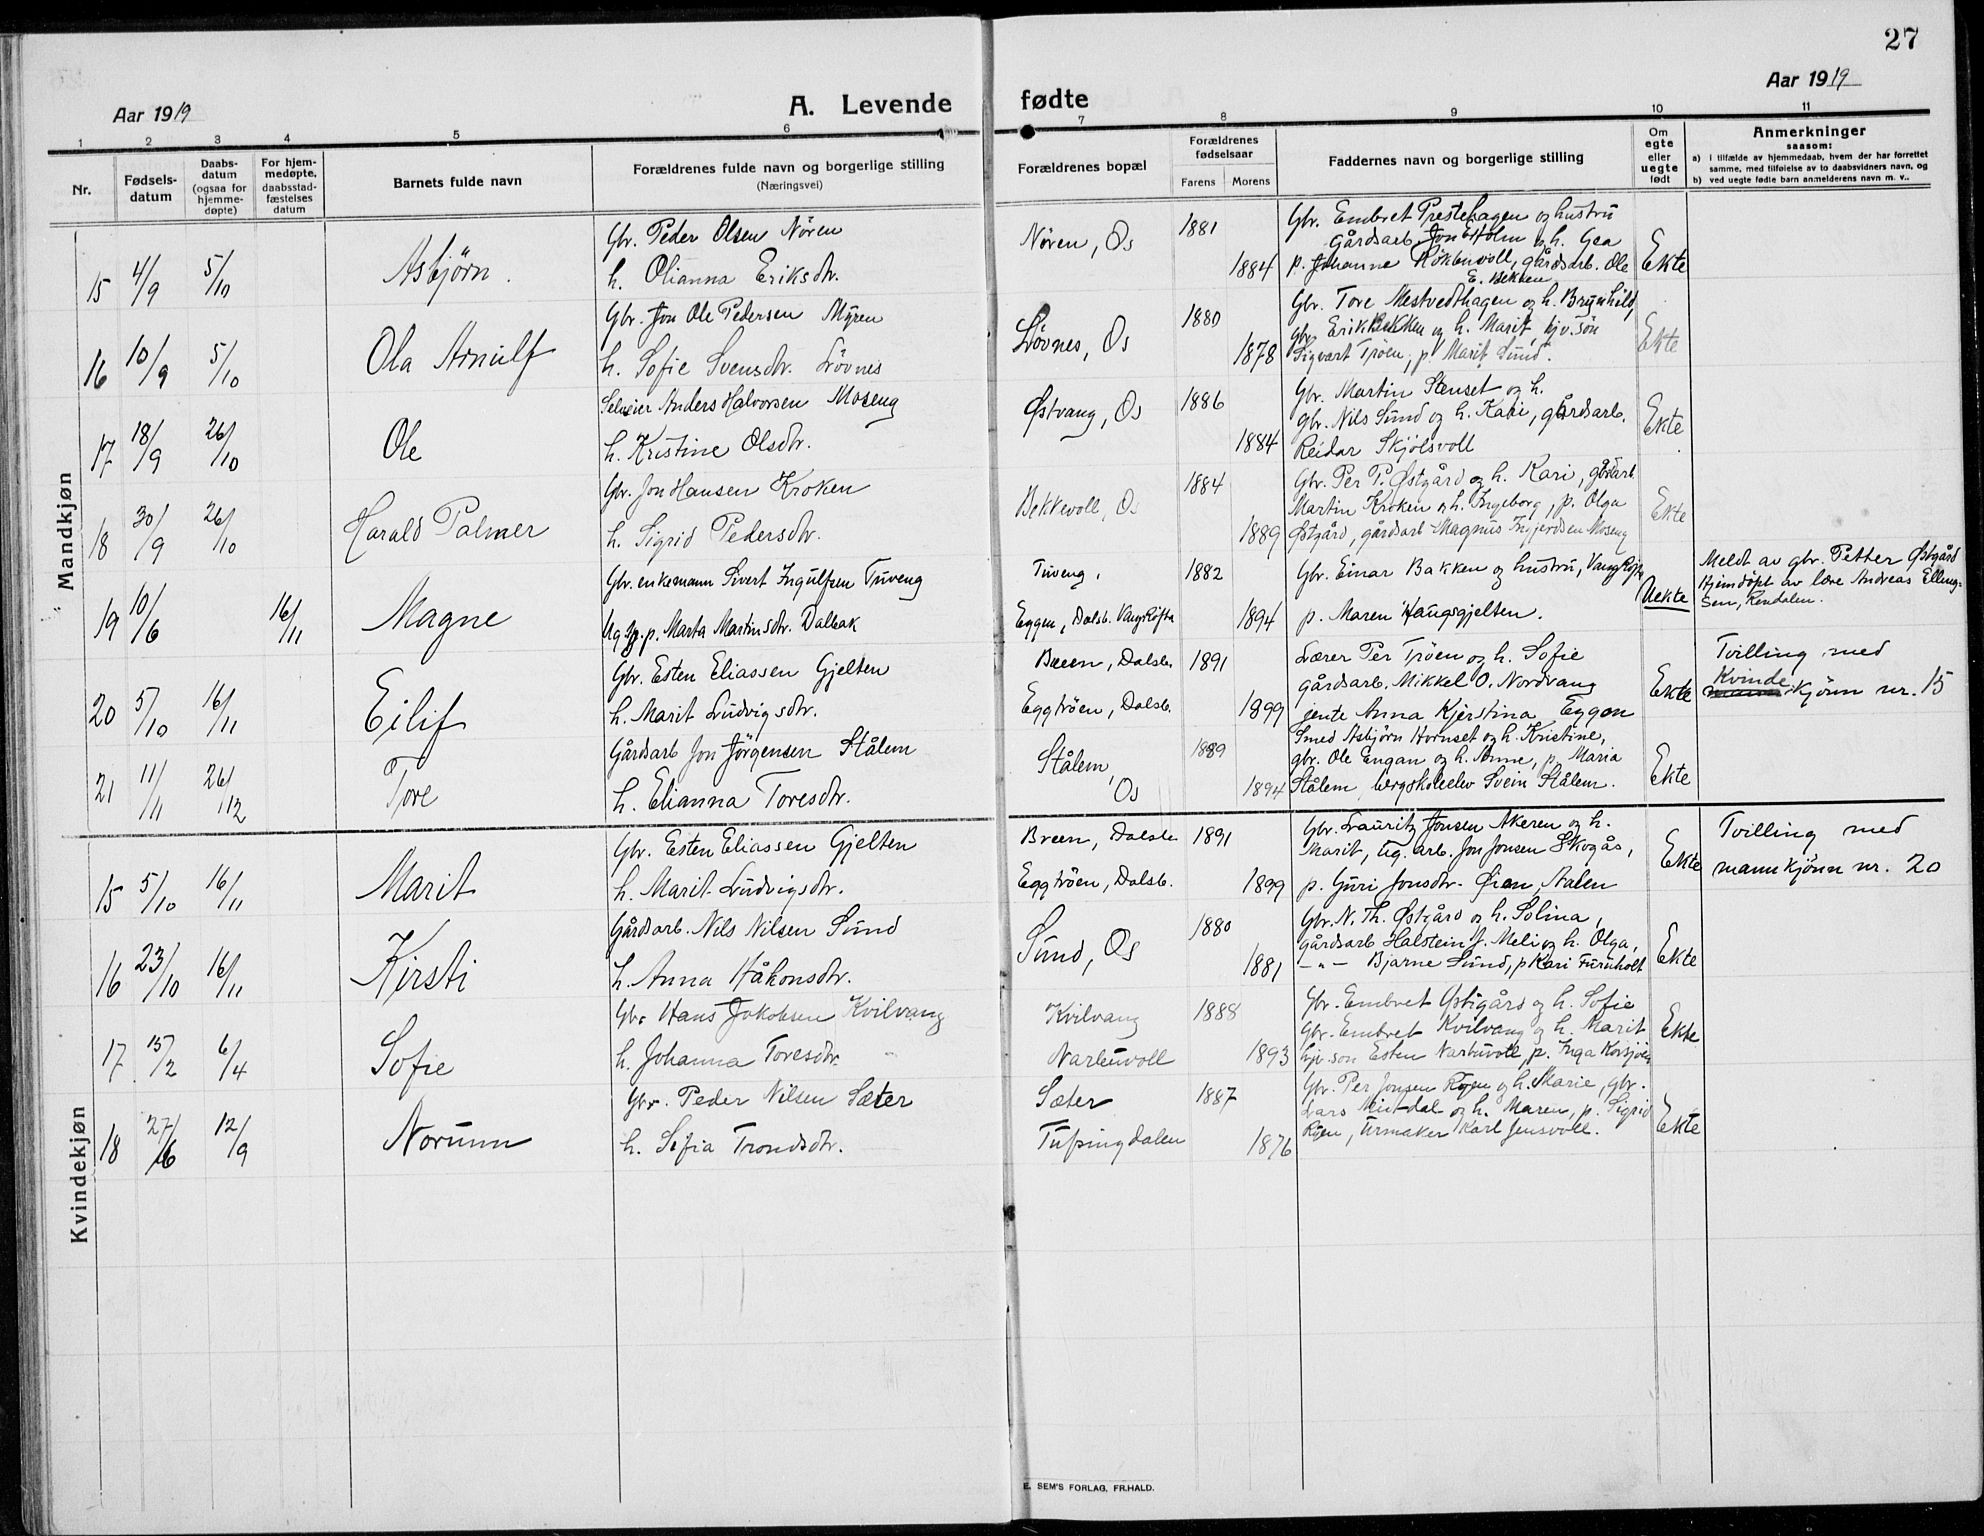 27
Aar 1919
A. Levende fødte
Aar 1919
1 2 3 4 5 6 7 8 9 10 11
Nr.
Fødsels-
datum
Daabs-
datum
(ogsaa for
hjemme-
døpte)
For hjem-
medøpte,
daabsstad-
fæstelses
datum
Barnets fulde navn
Forældrenes fulde navn og borgerlige stilling
(Næringsvei)
Forældrenes bopæl
Forældrenes
fødselsaar
Farens Morens
Faddernes navn og borgerlige stilling
Om
egte
eller
uegte
født
Anmerkninger
saasom:
a) i tilfælde av hjemmedaab, hvem der har forrettet
samme, med tilføielse av to daabsvidners navn, og
b) ved uegte fødte barn anmelderens navn m. v..
Mandkjøn
15 4/9 5/10 Asbjørn.
Gbr. Peder Olsen Nøren
h. Olianna Eriksdtr.
Nøren, Os 1881 1884
Gbr. Embret Prestehagen og hustru
gårdsarb. Jon E Holm og h. Gea
p. Johanne Røkkenvoll, gårdsarb. Ole
E. Bekken
Ekte
16 10/9 5/10 Ola Arnulf
Gbr. Jon Ole Pedersen Myren
h. Sofie Svensdtr. Løvnes
Løvnes, Os 1880 1878
Gbr. Tore Mestvedthagen og h. Brynhild,
gbr. Erik Bekken og h. Marit, hjv. søn
Sigvart Trøen, p. Marit Sund.
Ekte
17 18/9 26/10 Ole
Selveier Anders Halvorsen Moseng
h. Kristine Olsdtr.
Østvang, Os 1886 1884
Gbr. Martin Stenset og h.
gbr. Nils Sund og h. Kari, gårdsarb.
Reidar Skjølsvoll
Ekte
18 30/9 26/10 Harald Palmer
Gbr. Jon Hansen Kroken
h. Sigrid Pedersdtr.
Bekkevoll, Os 1884 1889
Gbr. Per P. Østgård og h. Kari, gårdsarb
Martin Kroken og h. Ingeborg, p. Olga
Østgård, gårdsarb Magnus Ingjerdsen Moseng
Ekte
19 10/6 16/11 Magne
Gbr. enkemann Sivert Ingulfsen Tuveng
Ug p. Marta Martinsdtr. Dalbak
Tuveng, 1882
Eggen, Dalsb. Vangrøfta 1894
Gbr. Einar Bakken og hustru, Vangrøfta
p. Maren Haugsgjelten.
Uekte
Meldt av gbr. Petter Østgård
Hjemdøpt av lære Andreas Elling-
sen, Rendalen.
20 5/10 16/11 Eilif
Gbr. Esten Eliassen Gjelten
h. Marit Ludvigsdtr.
Breen, Dalsb. 1891
Eggtrøen, Dalsb. 1899
Lærer Per Trøen og h. Sofie
gårdsarb. Mikkel O. Nordvang
jente Anna Kjerstina Eggen
Ekte
Tvilling med
Kvinde
kjønn nr. 15
21 11/11 26/12 Tore
Gårdsarb Jon Jörgensen Stålem
h. Elianna Toresdtr.
Stålem, Os 1889 1894
Smed Asbjørn Hornset og h. Kristine,
gbr. Ole Engan og h. Anne, p. Maria
Stålem, bergskoleelev Svein Stålem.
Ekte
Kvindekjøn
15 5/10 16/11 Marit
Gbr. Esten Eliassen Gjelten
h. Marit Ludvigsdtr.
Breen, Dalsb. 1891
Eggtrøen, Dalsb. 1899
Gbr. Lauritz Jonsen Akeren og h.
Marit, ug. arb. Jon Jonsen Skogås,
p. Guri Jonsdtr. Øien, Aalen
Ekte
Tvilling med
mannkjønn nr. 20
16 23/10 16/11 Kirsti
Gårdsarb. Nils Nilsen Sund
h. Anna Håkonsdtr.
Sund, Os 1880 1881
Gbr. N. Th. Østgård og h. Solina,
gårdsarb Halstein J. Meli og h. Olga,
-"- Bjarne Sund, p Kari Furuholt
Ekte
17 15/2 6/4 Sofie
Gbr Hans Jakobsen Kvilvang
h. Johanna Toresdtr.
Kvilvang 1888
Narbuvoll 1893
Gbr. Embret Østigård og h. Sofie
Gbr. Embret Kvilvang og h. Marit
hjv. søn Esten Narbuvoll, p. Inga Korsjøen
Ekte
18 27/6 12/9 Norunn
Gbr. Peder Nilsen Sæter
h. Sofia Trondsdtr.
Sæter 1887
Tufsingdalen 1876
Gbr. Per Jonsen Røen og h. Marie, gbr.
Lars Midtdal og h. Maren, p. Sigrid
Røen, urmaker Karl Jensvoll.
Ekte
E. SEM'S FORLAG, FR.HALD.